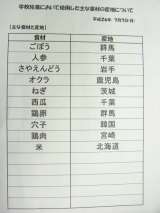 学校給食において使用した主な食材の産地について
平成26年 7月7日(月)
(主な食材と産地)
食材 産地
ごぼう 群馬
人参 千葉
さやえんどう 岩手
オクラ 鹿児島
ねぎ 茨城
西瓜 千葉
鶏卵 群馬
穴子 韓国
鶏肉 宮崎
米 北海道